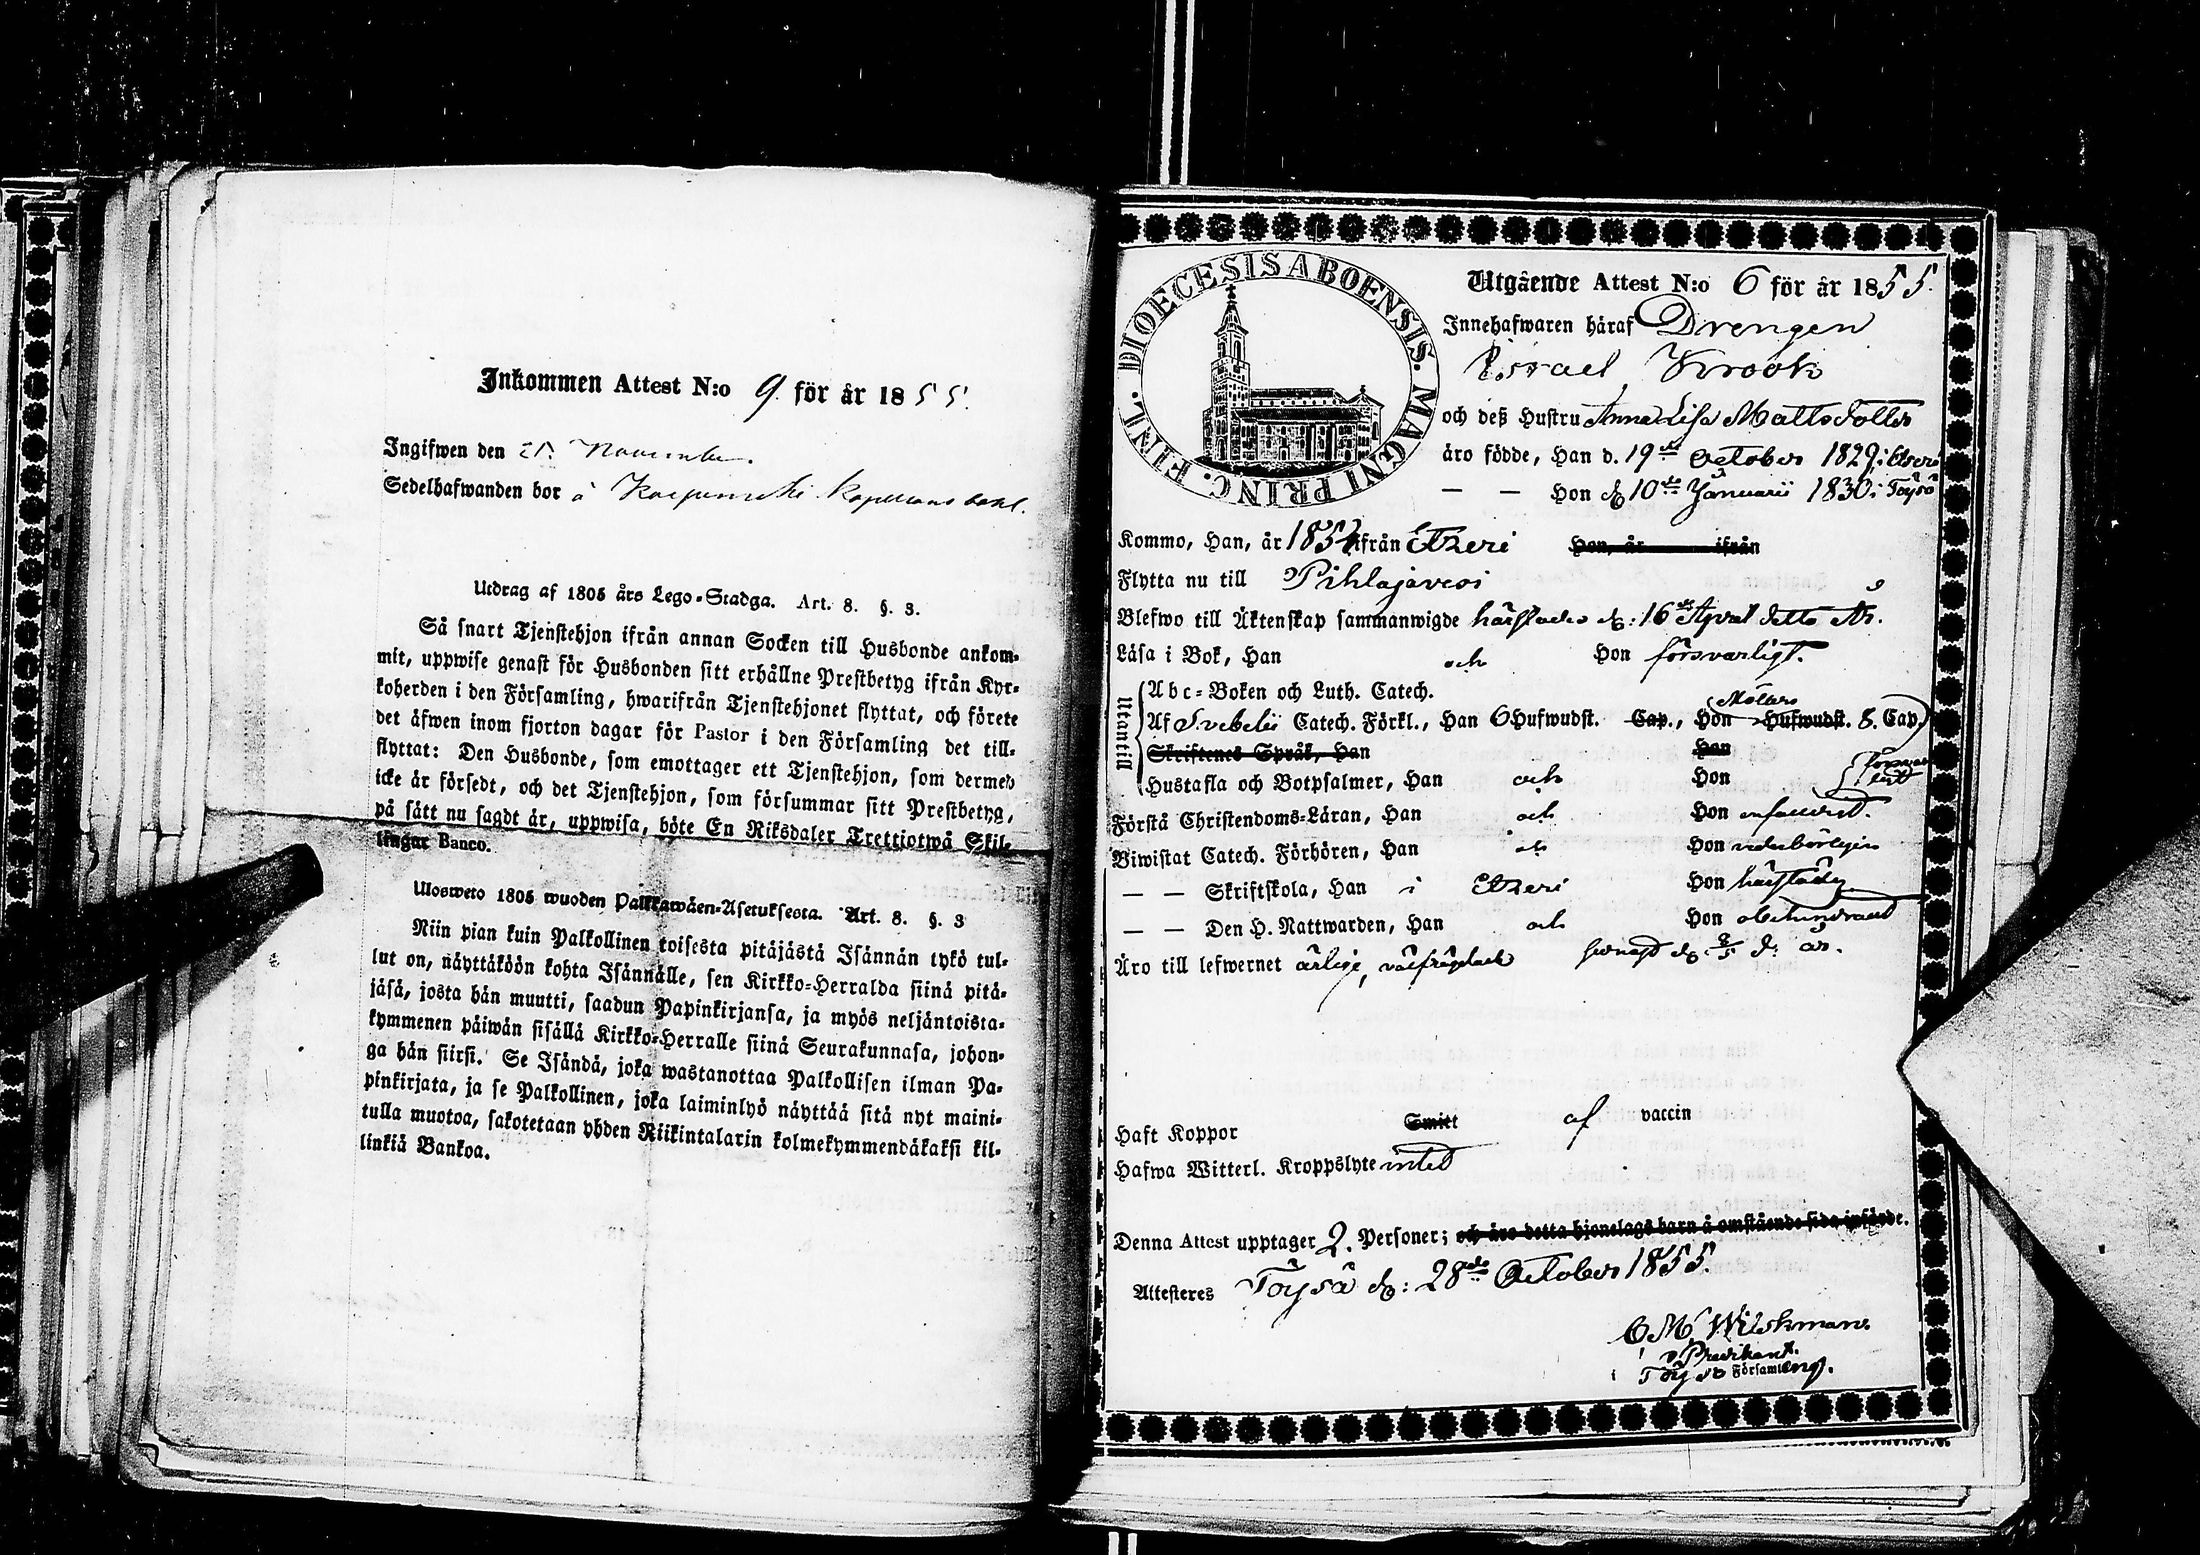 Inkommen Attest N:o 9. för år 1855.
Ingifwen den 21. November.
Sedelhafwanden bor å Kapellansbohl.
Utdrag af 1805 års Lego-Stadga. Art. 8. §. 3.
Så snart Tjenstehjon ifrån annan Socken till Husbonde ankom-
mit, uppwise genast för Husbonden sitt erhållne Prestbetyg ifrån Kyr-
koherden i den Församling, hwarifrån Tjenstehjonet flyttat, och förete
det äfwen inom fjorton dagar för Pastor i den Församling det till-
flyttat: Den Husbonde, som emottager ett Tjenstehjon, som dermed
icke är försedt, och det Tjenstehjon, som försummar sitt Prestbetyg,
på sätt nu sagdt är, uppwisa, böte En Riksdaler Trettiotwå Skil-
lingar Banco.
Ulosweto 1805 wuoden Palkkawäen-Asetuksesta. Art. 8. §. 3
Niin pian kuin Palkollinen toisesta pitäjästä Isännän tykö tul-
lut on, näyttäköön kohta Isännälle, sen Kirkko-Herralda siinä pitä-
jäsä, josta hän muutti, saadun Papinkirjansa, ja myös neljäntoista-
kymmenen päiwän sisällä Kirkko-Herralle siinä Seurakunnasa, johon-
ga hän siirsi. Se Isändä, joka wastanottaa Palkollisen ilman Pa-
pinkirjata, ja se Palkollinen, joka laiminlyö näyttää sitä nyt maini-
tulla muotoa, sakotetaan yhden Riikintalarin kolmekymmendäkaksi kil-
linkiä Bankoa.
DIOECESIS ABOENSIS. MAGNI PRINC. FINL.
Utgående Attest N:o 6 för år 1855.
Innehafwaren häraf Drengen
Israel Krook
och deß Hustru Anna Lisa Mattsdotter
äro födde, Han d. 19de October 1829 i Etseri
— — Hon d. 10de Januarii 1830 i Töysä
Kommo, Han, år 1854 ifrån Etzeri Hon, år ifrån
Flytta nu till Pihlajavesi
Blefwo till Äktenskap sammanwigde härstädes d: 16de April detta År.
Läsa i Bok, Han och Hon försvarligt.
Utantill
Abc-Boken och Luth. Catech.
Af Svebelii Catech. Förkl., Han 6 Hufwudst. Cap., Hon Hufwudst. 8. Cap.
Skriftenes Språk, Han Han
Hustafla och Botpsalmer, Han och Hon
Förstå Christendoms-Läran, Han och Hon enfaldigt.
Biwistat Catech. Förhören, Han och Hon vederbörligen
— — Skriftskola, Han i Etzeri Hon härstädes
— — Den H. Nattwarden, Han och Hon obehindradt
Äro till lefwernet ärlige, välfrägdade senast d. d: år.
Haft Koppor Smitt af vaccin
Hafwa Witterl. Kroppslyte intet
Denna Attest upptager 2. Personer; och äro detta hjonelags barn å omstående sida införde.
Attesteras Töysä d: 28de October 1855.
Wilskman.
v. Predikant.
i Töysä Församling.